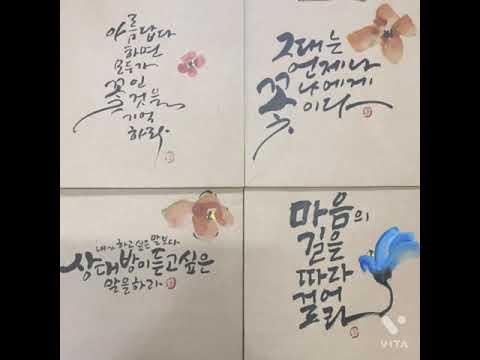 아름답다
하면
모두가
꽃인
것을
기억
하라.
그대는
언제나
나에게
꽃
이다.
내가 하고 싶은 말보다
상대방이 듣고 싶은
말을 하라
마음의
길을
따라
걸어
보라
VITA